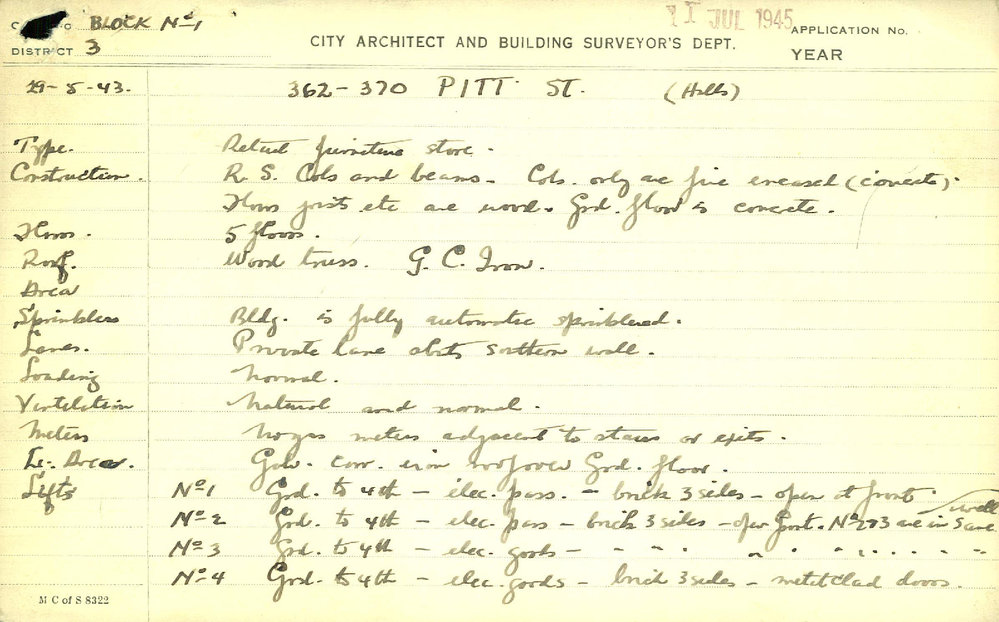 BLOCK Nº1
DISTRICT 3
CITY ARCHITECT AND BUILDING SURVEYOR'S DEPT.
11 JUL 1945
APPLICATION No.
YEAR
29-5-43. 362-370 PITT ST. (Halls)
Type. Retail furniture store.
Construction. R. S. Cols and beams. Cols. only are fire encased (concrete).
Floors joists etc are wood. Grd. floor is concrete.
Floors. 5 floors.
Roof. Wood truss. G. C. Iron.
Area
Sprinklers Bldg. is fully automatic sprinklered.
Lanes. Private lane abuts southern wall.
Loading Normal.
Ventilation Natural and normal.
Meters No gas meters adjacent to stairs or exits.
Lt. Area. Galv. corr. iron roof over Grd. floor.
Lifts Nº1 Grd. to 4th - elec. pass. - brick 3 sides - open at front.
Nº2 Grd. to 4th - elec. pass - brick 3 sides - open front. Nº2 & 3 are in same well
Nº3 Grd. to 4th - elec. goods - " " " " " " " "
Nº4 Grd. to 4th - elec. goods - brick 3 sides - metal clad doors.
M C of S 8322